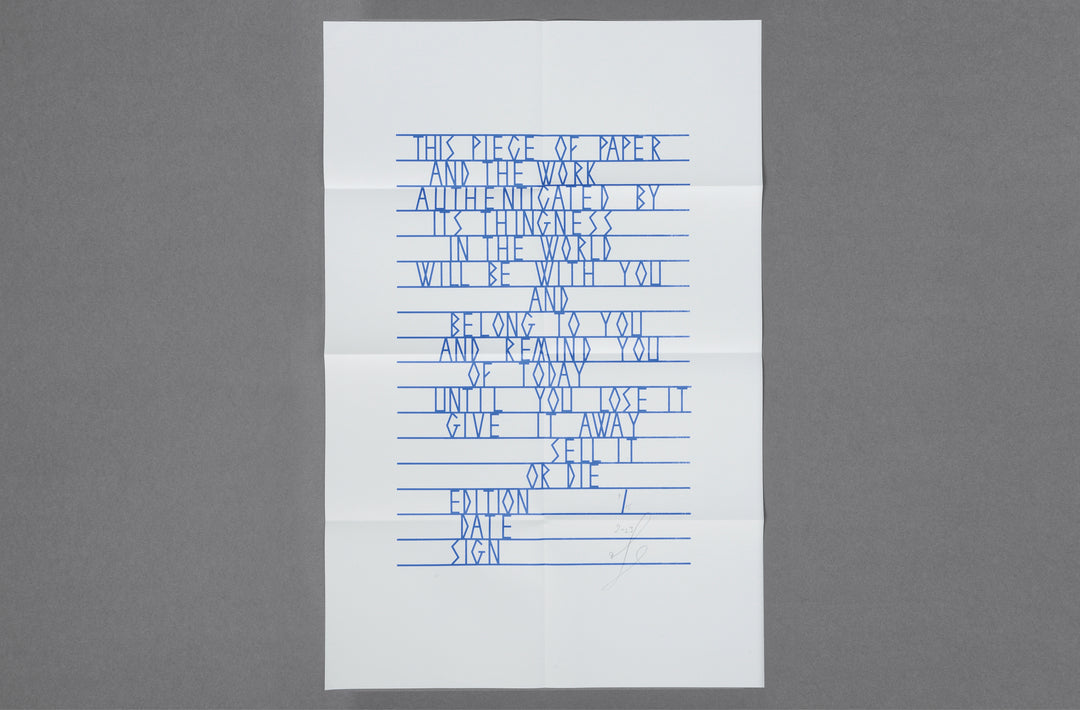 THIS PIECE OF PAPER
AND THE WORK
AUTHENTICATED BY
ITS THINGNESS
IN THE WORLD
WILL BE WITH YOU
AND
BELONG TO YOU
AND REMIND YOU
OF TODAY
UNTIL YOU LOSE IT
GIVE IT AWAY
SELL IT
OR DIE
EDITION /
DATE
SIGN